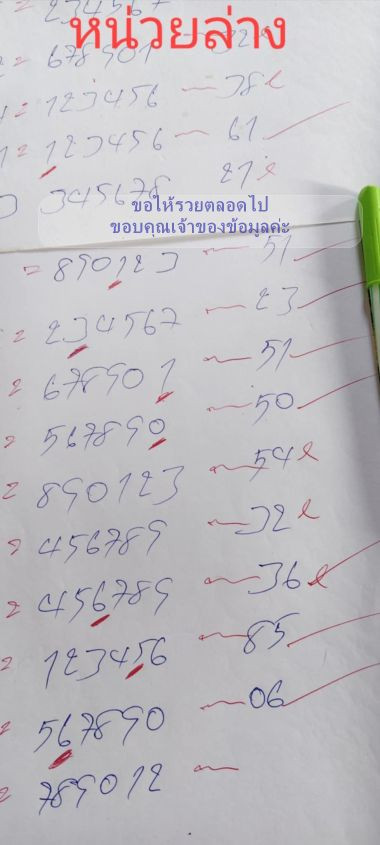 = 234567
หน่วยล่าง
= 678901 32
= 123456 38
= 123456 61
345678 21
ขอให้รวยตลอดไป
ขอบคุณเจ้าของข้อมูลค่ะ
= 890123 51
= 234567 23
= 678901 51
= 567890 50
= 890123 54
= 456789 32
= 456789 36
= 123456 85
= 567890 06
= 789012